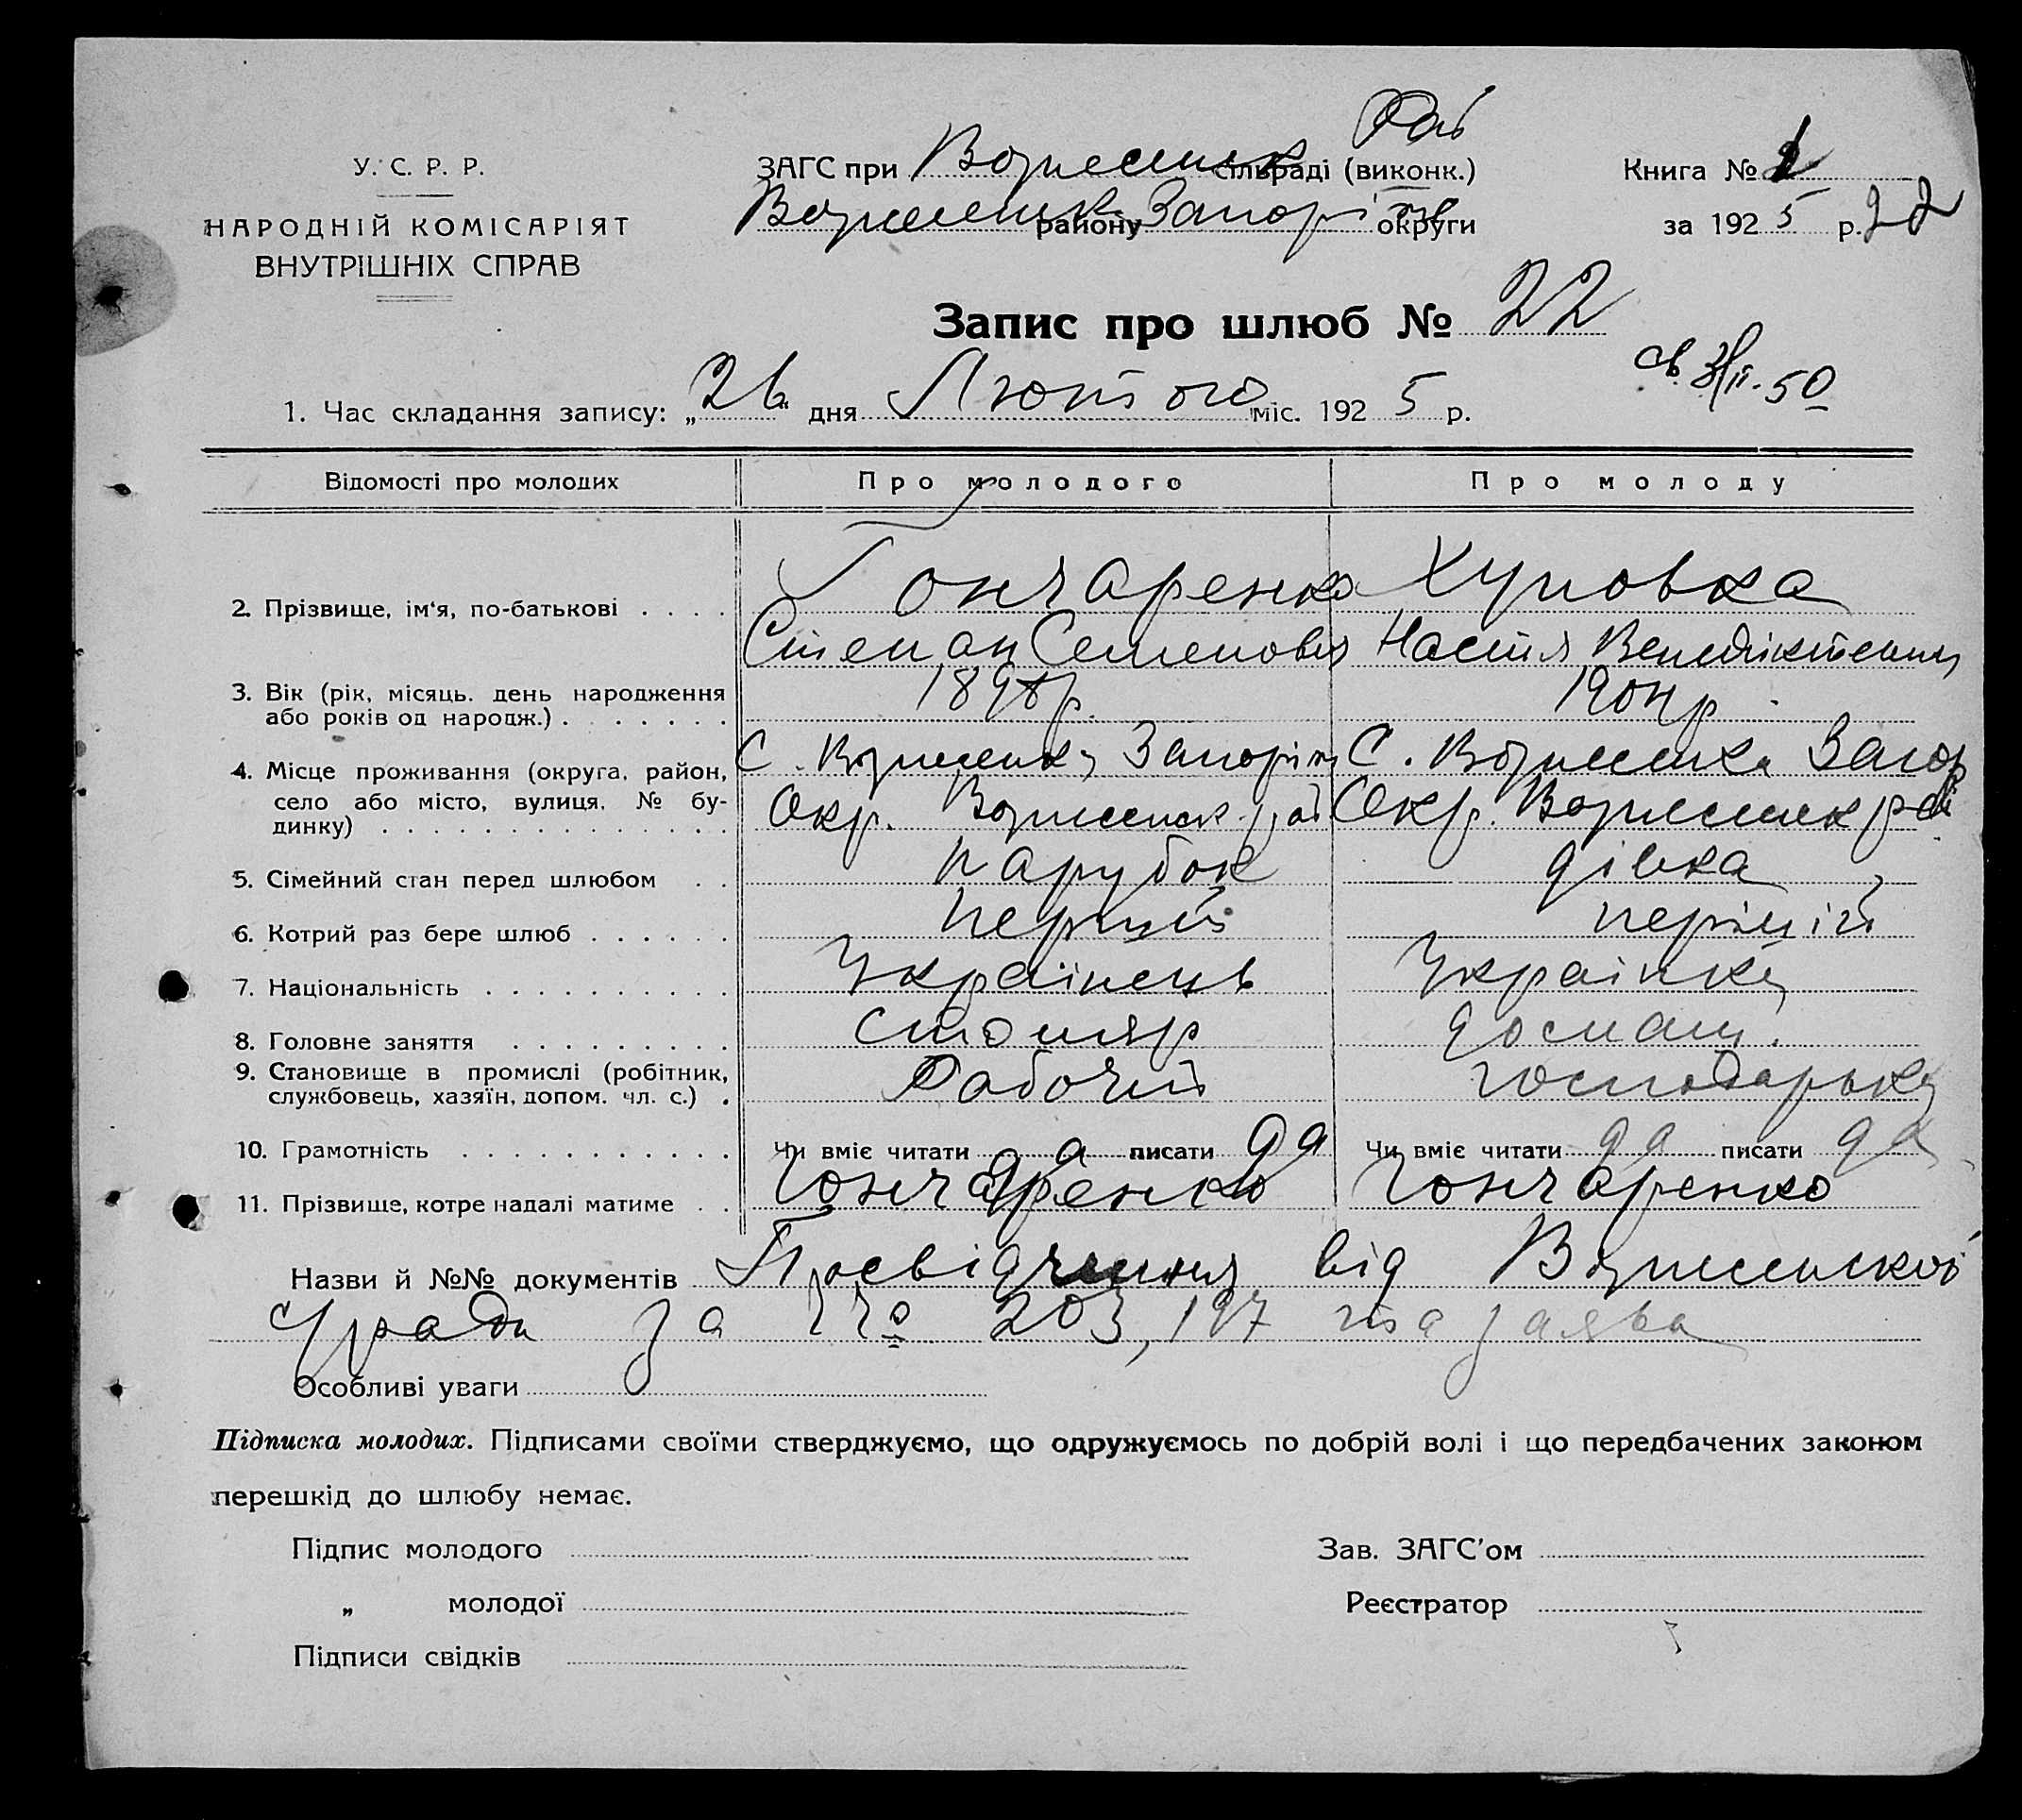 У. С. Р. Р.
НАРОДНІЙ КОМІСАРІЯТ
ВНУТРІШНІХ СПРАВ
Рай
ЗАГС при Вознесенск сільраді (виконк.)
Вознесенск району Запоріж округи
Книга № 1
за 1925 р. 22
Запис про шлюб № 22
1. Час складання запису: „26“ дня Лютого міс. 1925 р.
св. 50
Відомості про молодих Про молодого Про молоду
2. Прізвище, ім‘я, по-батькові . . . . Гончаренко Хуповка
Степан Семенович Настя Венедіктовна
3. Вік (рік, місяць. день народження
або років од народж.) . . . . . . . 1898р. 1904р.
4. Місце проживання (округа, район,
село або місто, вулиця, № бу-
динку) . . . . . . . . . . . . . .
С. Вознесенка Запоріж С. Вознесенка Запор
Окр. Вознесенск. рай Окр. Вознесенск рай
5. Сімейний стан перед шлюбом . . парубок дівка
6. Котрий раз бере шлюб . . . . . . первий перший
7. Національність . . . . . . . . . . Українець Українка
8. Головне заняття . . . . . . . . . столяр
9. Становище в промислі (робітник,
службовець, хазяїн, допом. чл. с.) . Рабочий господарька
10. Грамотність . . . . . . . . . . . Чи вміє читати да писати да Чи вміє читати да писати да
11. Прізвище, котре надалі матиме . . Гончаренко Гончаренко
Назви й №№ документів Посвідчення від Вознесенской
С/ради за № 203, 197 та заява
Особливі уваги
Підписка молодих. Підписами своїми стверджуємо, що одружуємось по добрій волі і що передбачених законом
перешкід до шлюбу немає.
Підпис молодого Зав. ЗАГС’ом
„ молодої Реєстратор
Підписи свідків